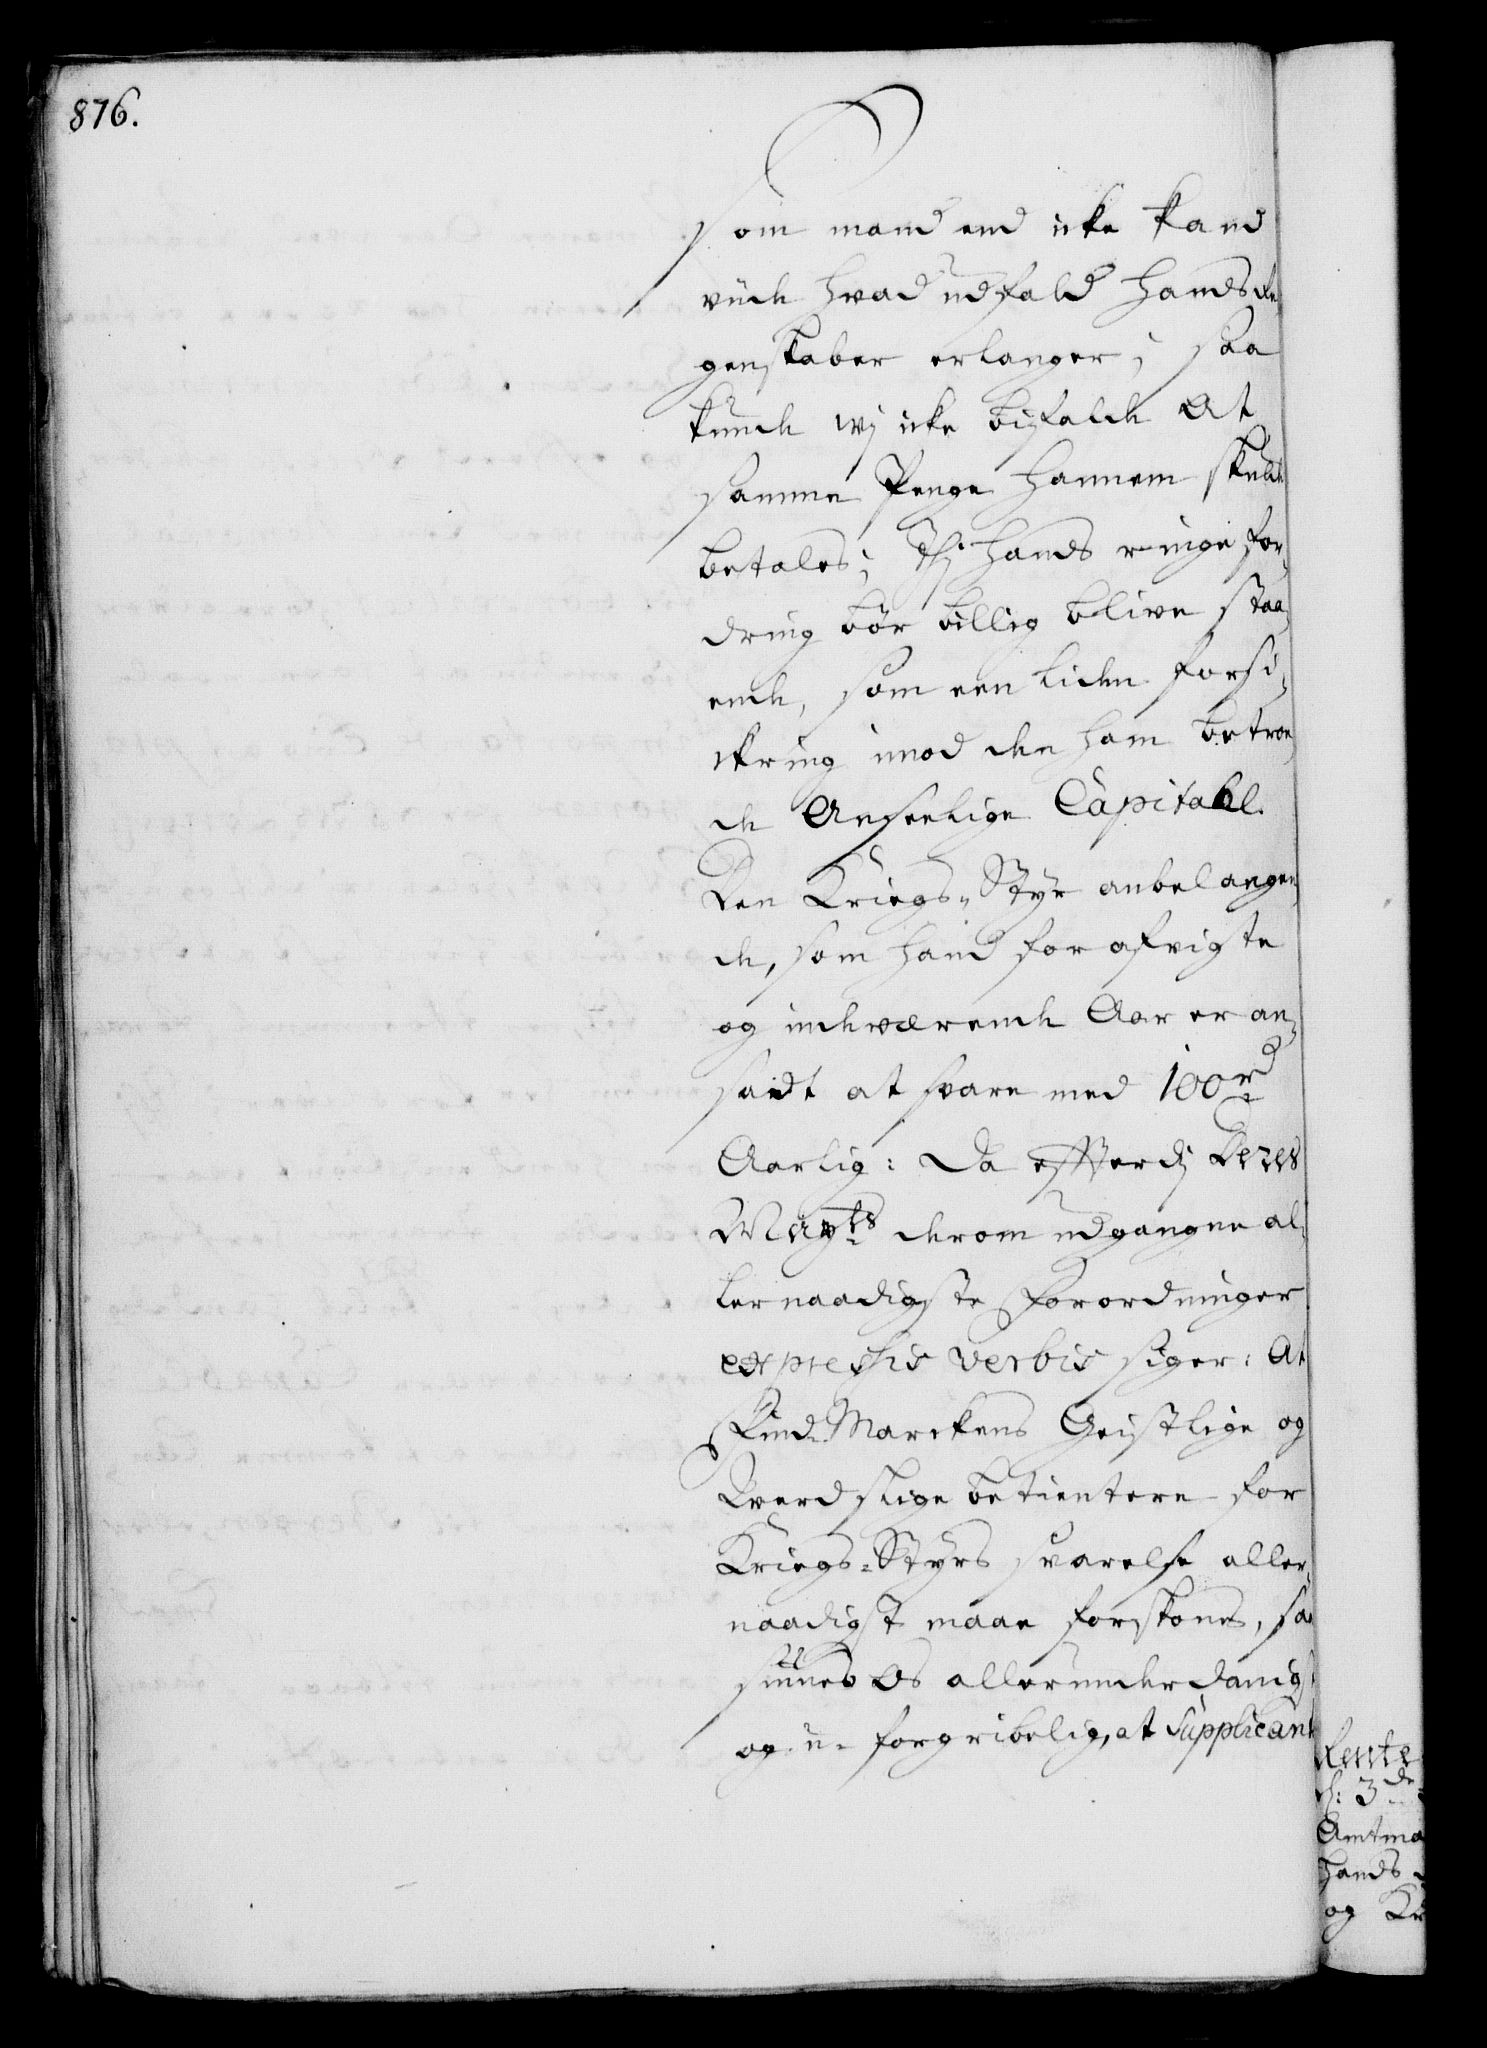 876.
som mand end icke kand
viide hvad udfald hands Re¬
genskaber erlanger; saa
kunde wj icke bijfalde At
samme Penge hannem skulde
betales; Thj hands ringe for¬
dring bör billig blive staa¬
ende, som een liden forsi¬
ckring imod den ham betroe¬
de Anseelige Capitahl.
Den Kriegs-Styr anbelangen¬
de, som hand for afvigte
og indeværende Aar er an¬
sadt at svare med 100 rd
Aarlig: Da efftterdj Deres
Mayts derom udgangne al¬
lernaadigste Forordninger
expressis verbis siger: At
Find-Marckens Geistlige og
Verdslige betientere for
Kriegs-Styrs svarelse aller¬
naadigst maae forskones, saa
siunes Os allerunderdanigst
og u-forgribelig, at Supplicant
Rente
d: 3de
Amtma
hands
og Kr